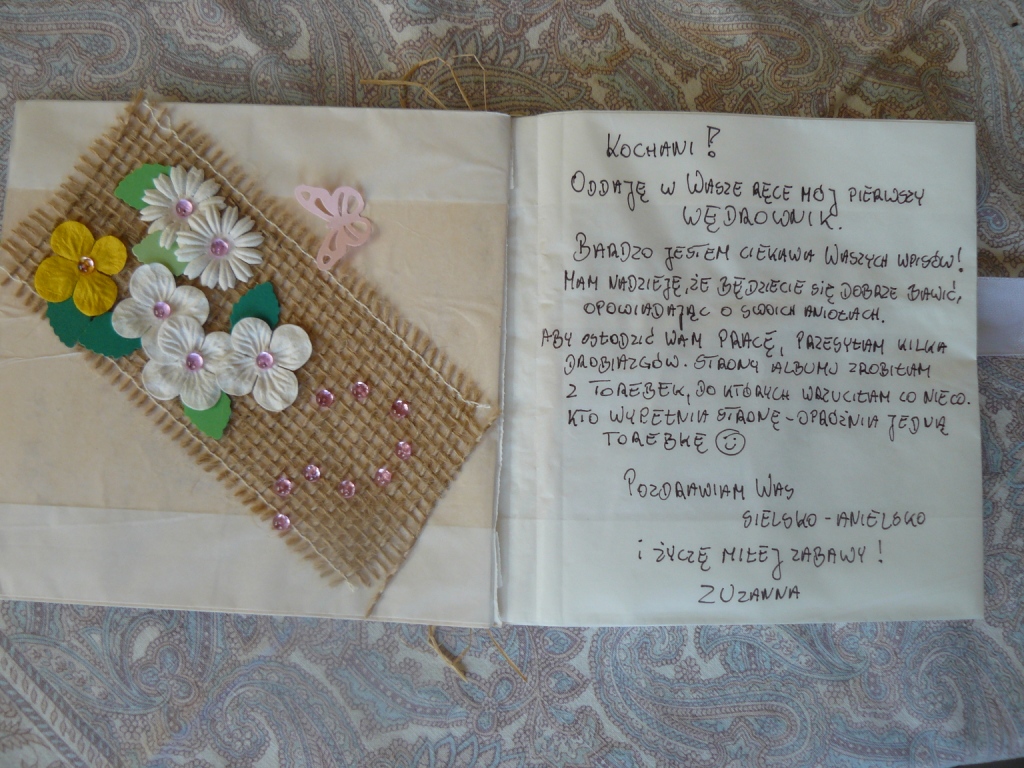 KOCHANI!
ODDAJĘ W WASZE RĘCE MÓJ PIERWSZY
WĘDROWNIK.
BARDZO JESTEM CIEKAWA WASZYCH WPISÓW!
MAM NADZIEJĘ, ŻE BĘDZIECIE SIĘ DOBRZE BAWIĆ,
OPOWIADAJĄC O SWOICH ANIOŁACH.
ABY OSŁODZIĆ WAM PRACĘ, PRZESYŁAM KILKA
DROBIAZGÓW. STRONY ALBUMU ZROBIŁAM
Z TOREBEK, DO KTÓRYCH WRZUCIŁAM CO NIECO.
KTO WYPEŁNIA STRONĘ - OPRÓŻNIA JEDNĄ
TOREBKĘ ☺
POZDRAWIAM WAS
SIELSKO - ANIELSKO
i ŻYCZĘ MIŁEJ ZABAWY!
ZUZANNA